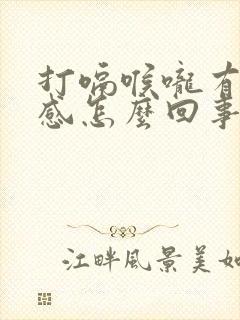 打嗝喉嚨有
感怎麼回事
江畔風景美如